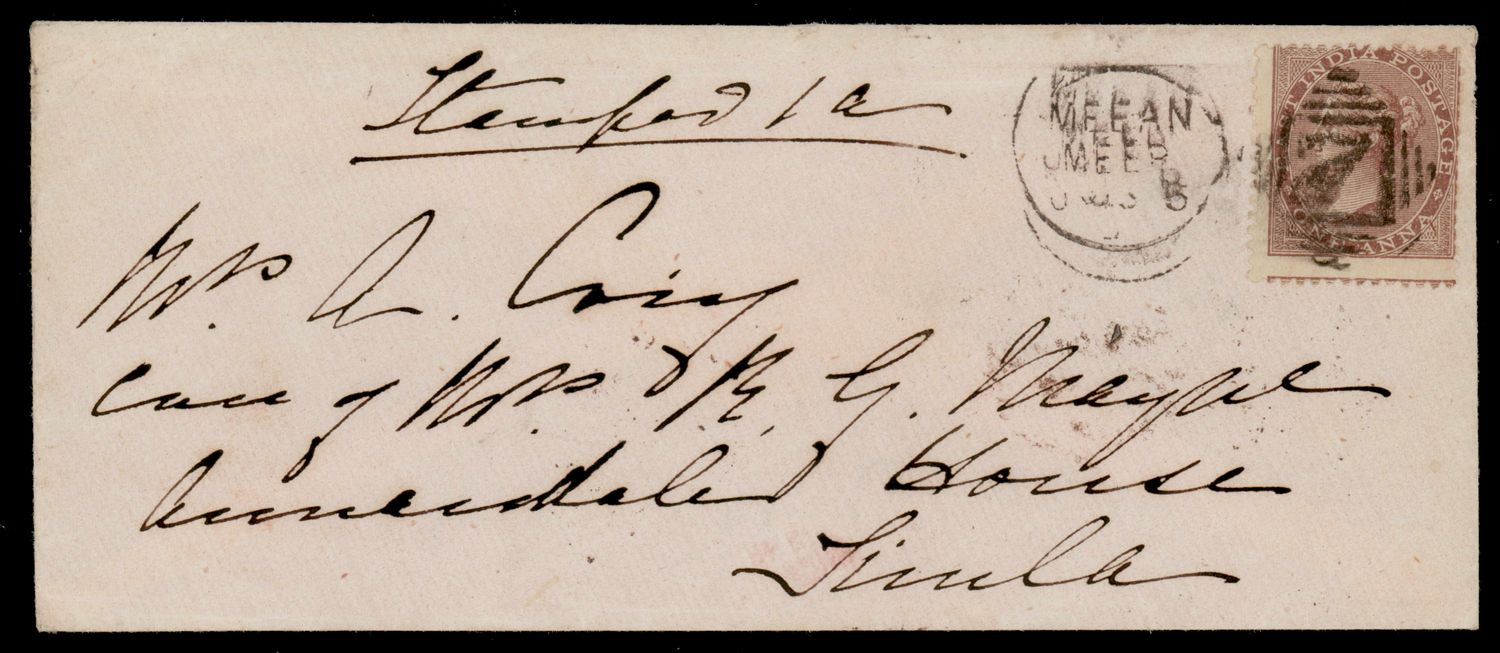 Stamped 1 a
MEEAN
MEER
EAST INDIA POSTAGE
ONE ANNA
Mrs. A. Cory
care of Mrs. R. G. Mayne
Annandale House
Simla